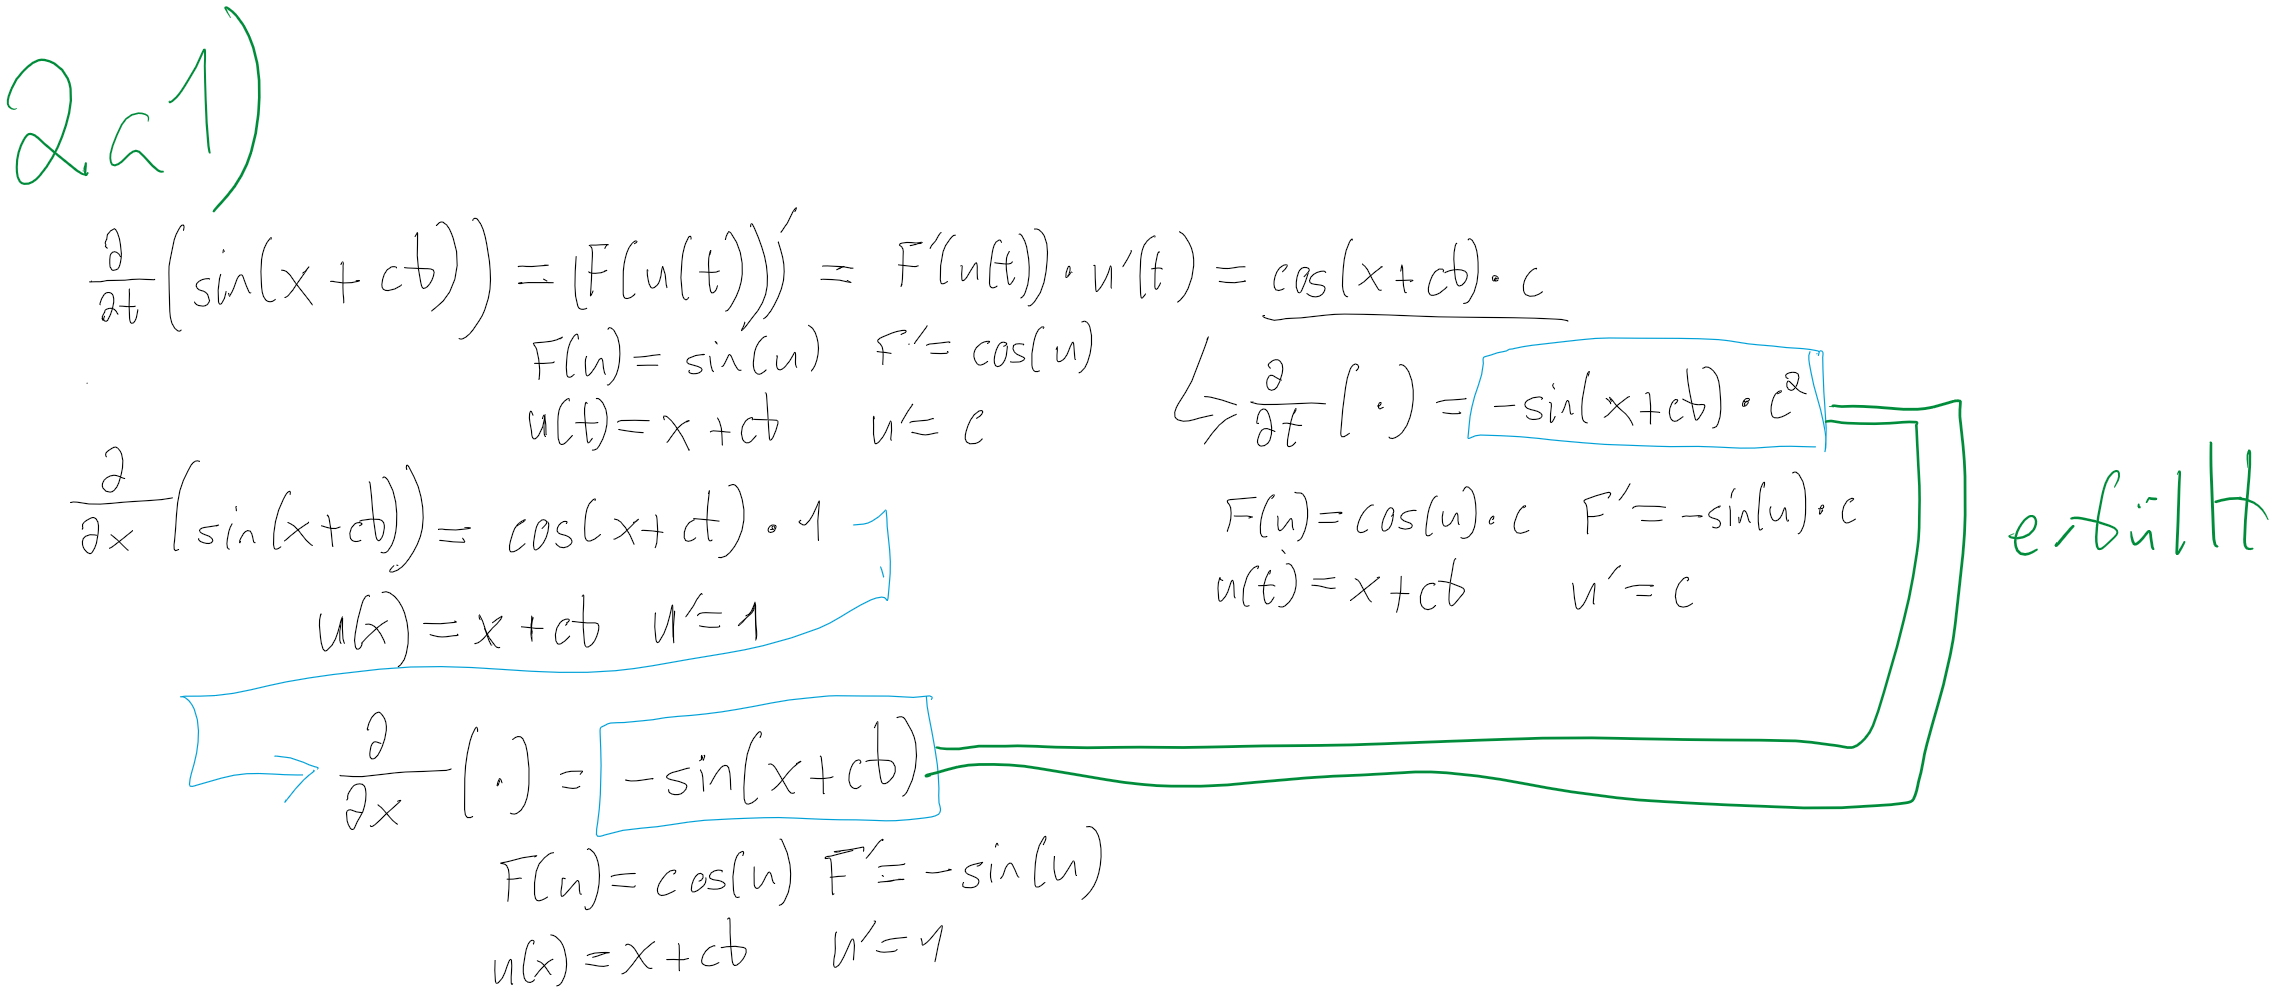 2a1)
∂/∂t (sin(x + ct)) = (F(u(t)))' = F'(u(t)) · u'(t) = cos(x + ct) · c
F(u) = sin(u) F' = cos(u)
u(t) = x + ct u' = c
↳ ∂/∂t (·) = -sin(x + ct) · c²
F(u) = cos(u) · c F' = -sin(u) · c
u(t) = x + ct u' = c
erfüllt
∂/∂x (sin(x + ct)) = cos(x + ct) · 1
u(x) = x + ct u' = 1
→ ∂/∂x (·) = -sin(x + ct)
F(u) = cos(u) F' = -sin(u)
u(x) = x + ct u' = 1